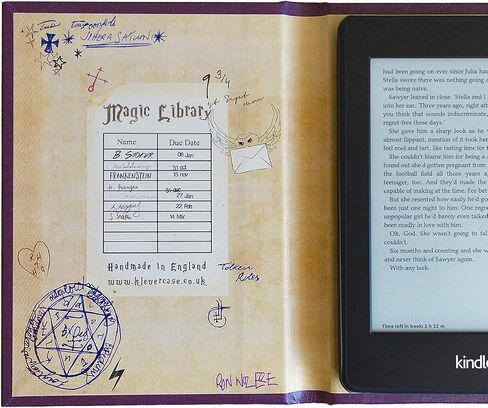 9 3/4
1st Sept
Magic Library
Name Due Date
B. STOKER 08 Jan
31 Oct
FRANKENSTEIN 15 nov
H. Granger
27 Jan
22 Feb
S Snape 14 Mar
Handmade in England
www.klevercase.co.uk
Tolkien
Rules
had been going on ever since Julia had
Stella swore there was nothing going o
was being naive.
Sawyer leaned in close. 'Stella and I
into her ear. 'Three years ago, right afte
you think that sounds indiscriminate,
regret-free these days.'
She gave him a sharp look as he w
almost flippant, mention of it took her
feel cool and tart, like tasting lime for t
She couldn't blame him for being a
found out she'd gotten pregnant from
the football field all those years ag
teenager, too. And they'd made the
capable of making at the time. For bet
But she resented how easily he'd go
been just one night to him. One regre
unpopular girl he'd barely even talked
been madly in love with him.
Oh, God. She wasn't going to fal
couldn't.
Six months and counting and she w
and never think of Sawyer again.
With any luck.
Time left in book: 2 h 22 m
kindle